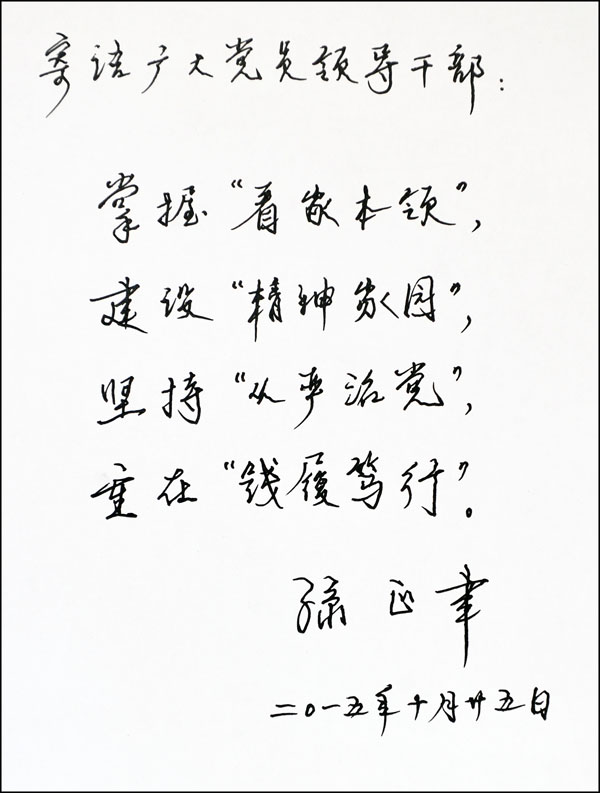 寄语广大党员领导干部：
掌握“看家本领”，
建设“精神家园”，
坚持“从严治党”，
重在“践履笃行”。
孙正聿
二〇一五年十月廿五日